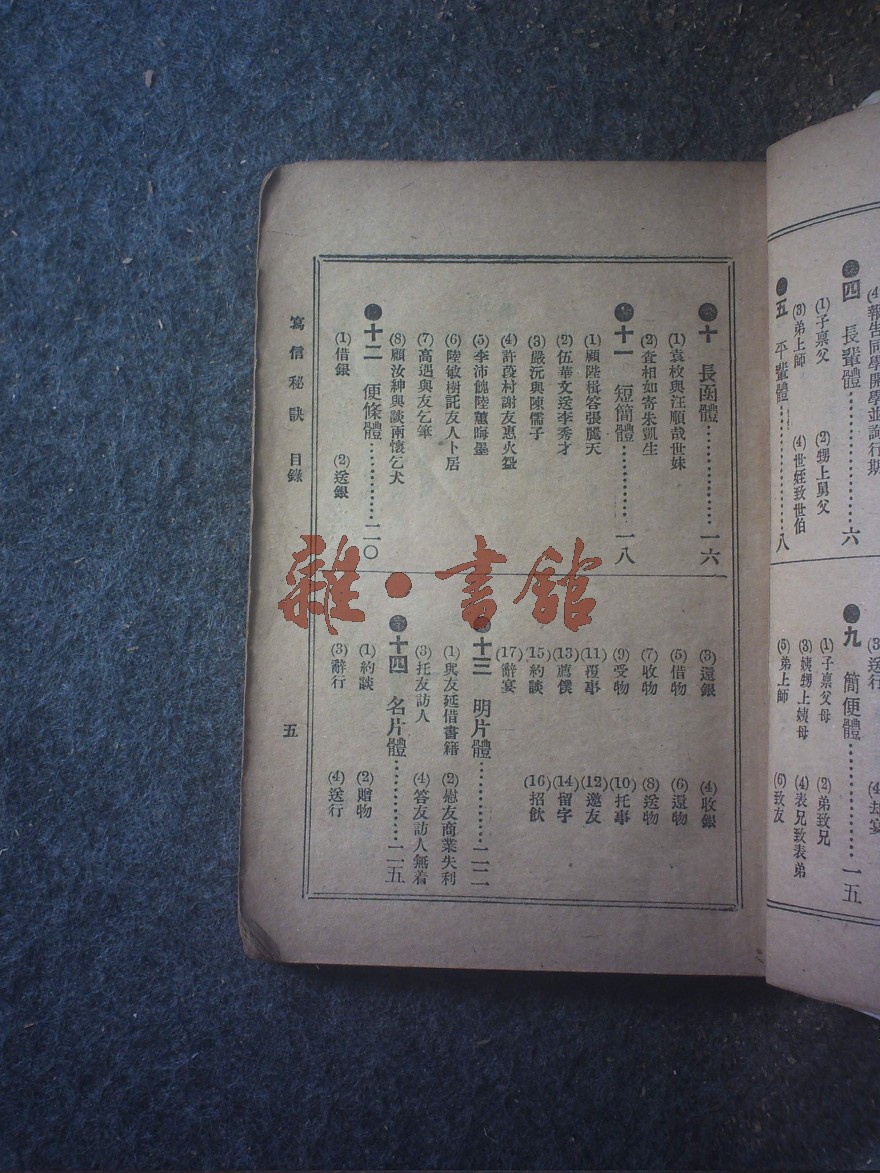 (4)報告同學開學並詢行期
四 長輩體………六
(1)子禀父 (2)甥上舅父
(3)弟上師 (4)世姪致世伯
五 平輩體………八
(3)送行
九 簡便體………一五
(1)子禀父母 (2)弟致兄
(3)姨甥上姨母 (4)表兄致表弟
(5)弟上師 (6)致友
十 長函體………一六
(1)袁枚與汪順哉世妹
(2)査相如寄朱凱生
十一 短簡體………一八
(1)顧陛楫答張騰天
(2)伍華文送李秀才
(3)嚴沅與陳儒子
(4)許葭村謝友惠火盌
(5)李沛餽陸蕙晦墨
(6)陸敏樹託友人卜居
(7)高遇與友乞筆
(8)顧汝紳與談雨懷乞犬
十二 便條體………二〇
(1)借銀 (2)送銀
(3)還銀 (4)收銀
(5)借物 (6)還物
(7)收物 (8)送物
(9)受物 (10)托事
(11)覆事 (12)邀友
(13)薦僕 (14)留字
(15)約談 (16)招飲
(17)辭宴
十三 明片體………二二
(1)與友延借書籍 (2)慰友商業失利
(3)托友訪人 (4)答友訪人無着
十四 名片體………二五
(1)約談 (2)贈物
(3)辭行 (4)送行
寫信秘訣 目錄 五
雜·書館